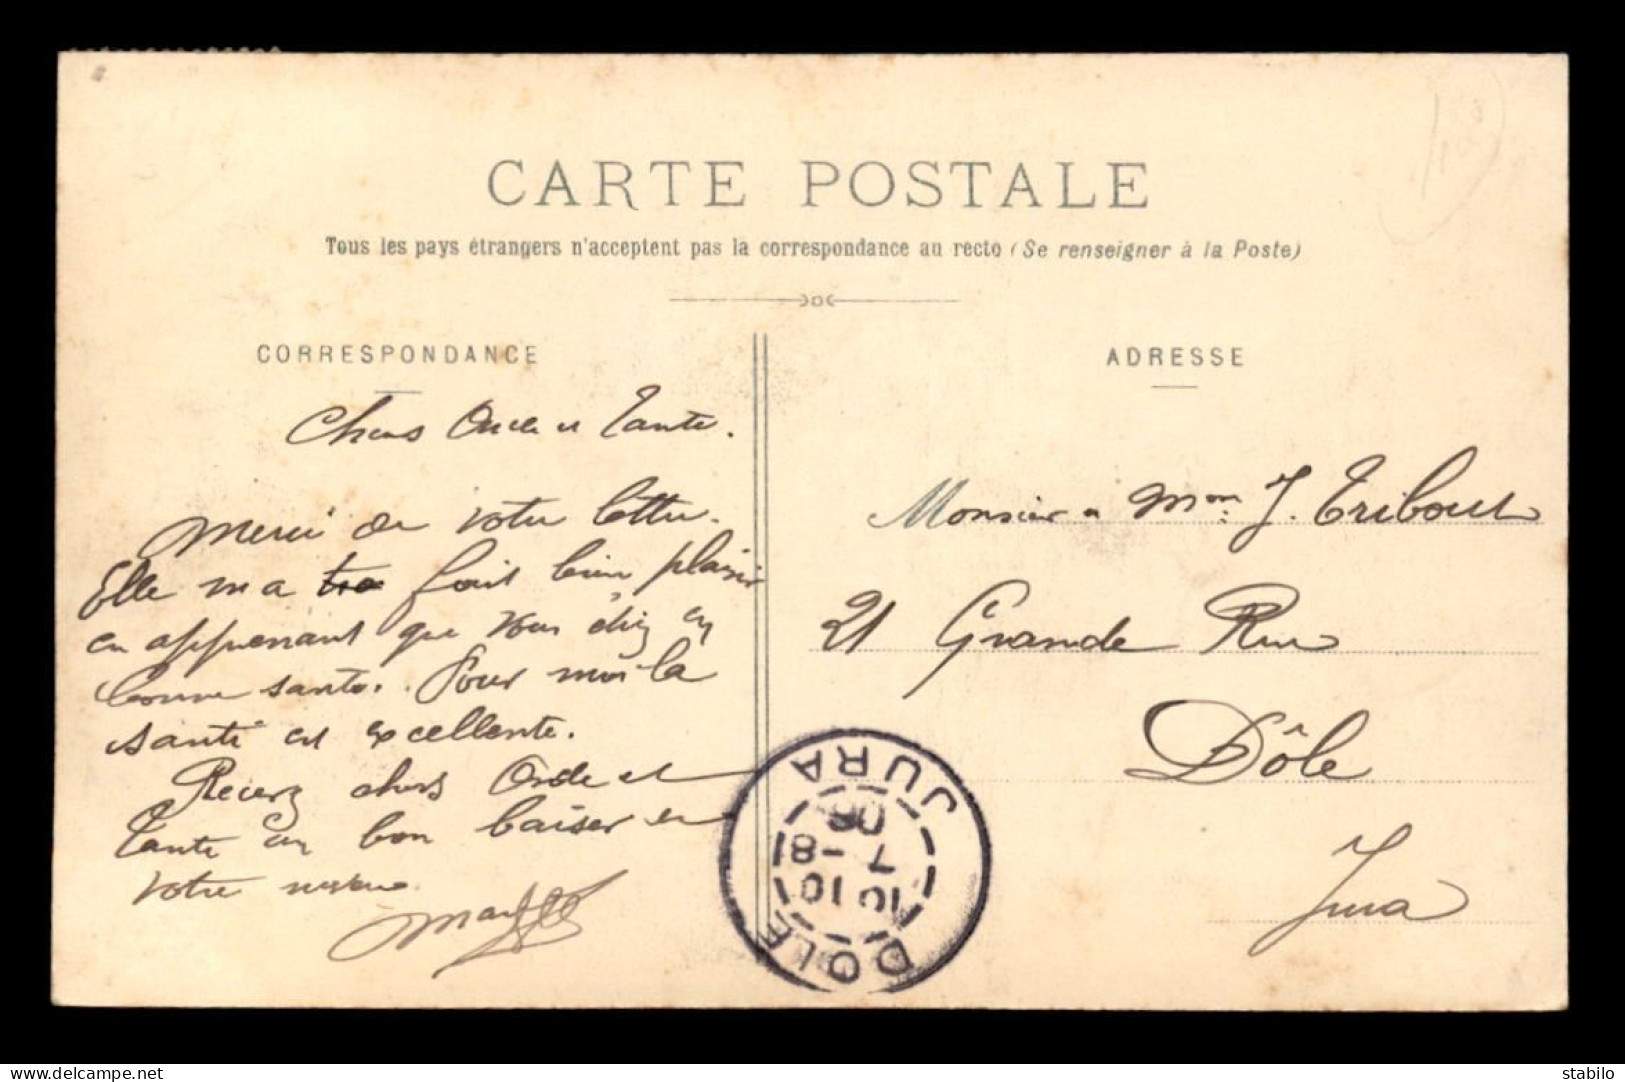 CARTE POSTALE
Tous les pays étrangers n'acceptent pas la correspondance au recto (Se renseigner à la Poste)
CORRESPONDANCE
Chers Oncle et Tante.
Merci de votre lettre.
Elle m a fait bien plaisir
en apprenant que vous étiez en
bonne santé. Pour moi la
santé est excellente.
Recevez chers Oncle et
Tante un bon baiser de
votre neveu
ADRESSE
Monsieur et Mme J. Tribout
21 Grande Rue
Dôle
Jura
DOLE
10 10
7 -8
06
JURA
delcampe.net
stabilo